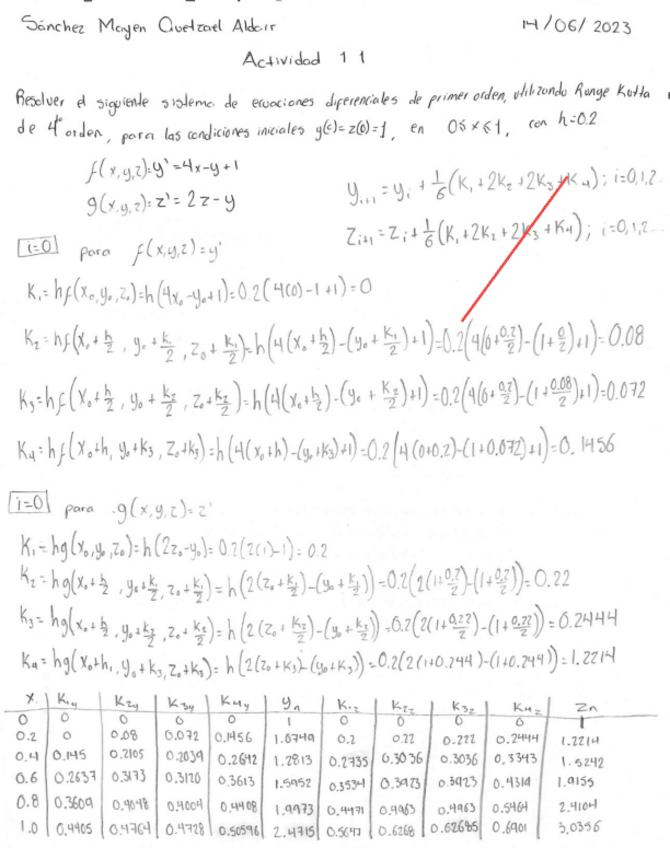 Sánchez Mayen Quetzael Aldair 14/06/2023
Actividad 11
Resolver el siguiente sistema de ecuaciones diferenciales de primer orden, utilizando Runge Kutta
de 4° orden, para las condiciones iniciales y(0)=z(0)=1, en 0≤x≤1, con h=0.2
f(x,y,z)=y'=4x-y+1
g(x,y,z)=z'=2z-y
y_{i+1}=y_i+1/6(K₁+2K₂+2K₃+K₄); i=0,1,2..
z_{i+1}=z_i+1/6(K₁+2K₂+2K₃+K₄); i=0,1,2...
i=0 para f(x,y,z)=y'
K₁=hf(x₀,y₀,z₀)=h(4x₀-y₀+1)=0.2(4(0)-1+1)=0
K₂=hf(x₀+h/2, y₀+k₁/2, z₀+k₁/2)=h(4(x₀+h/2)-(y₀+k₁/2)+1)=0.2(4(0+0.2/2)-(1+0/2)+1)=0.08
K₃=hf(x₀+h/2, y₀+k₂/2, z₀+k₂/2)=h(4(x₀+h/2)-(y₀+k₂/2)+1)=0.2(4(0+0.2/2)-(1+0.08/2)+1)=0.072
K₄=hf(x₀+h, y₀+k₃, z₀+k₃)=h(4(x₀+h)-(y₀+k₃)+1)=0.2(4(0+0.2)-(1+0.072)+1)=0.1456
i=0 para g(x,y,z)=z'
K₁=hg(x₀,y₀,z₀)=h(2z₀-y₀)=0.2(2(1)-1)=0.2
K₂=hg(x₀+h/2, y₀+k₁/2, z₀+k₁/2)=h(2(z₀+k₁/2)-(y₀+k₁/2))=0.2(2(1+0.2/2)-(1+0.2/2))=0.22
K₃=hg(x₀+h/2, y₀+k₂/2, z₀+k₂/2)=h(2(z₀+k₂/2)-(y₀+k₂/2))=0.2(2(1+0.22/2)-(1+0.22/2))=0.2444
K₄=hg(x₀+h, y₀+k₃, z₀+k₃)=h(2(z₀+k₃)-(y₀+k₃))=0.2(2(1+0.244)-(1+0.244))=1.2214
x K₁y K₂y K₃y K₄y yn K₁z K₂z K₃z K₄z Zn
0 0 0 0 0 1 0 0 0 0 1
0.2 0 0.08 0.072 0.1456 1.0749 0.2 0.22 0.222 0.2444 1.2214
0.4 0.145 0.2105 0.2039 0.2642 1.2813 0.2735 0.3036 0.3036 0.3343 1.5242
0.6 0.2637 0.3173 0.3120 0.3613 1.5952 0.3534 0.3923 0.3923 0.4314 1.9155
0.8 0.3609 0.4048 0.4004 0.4408 1.9973 0.4471 0.4963 0.4963 0.5464 2.4104
1.0 0.4405 0.4764 0.4728 0.50596 2.4715 0.5647 0.6268 0.62685 0.6901 3.0356